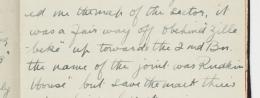 ed me the map of the sector, it
was a fair way off behind "Zille
-beke" up towards the 2nd Bn.
the name of the joint was Rudkin
House" but save the mark there